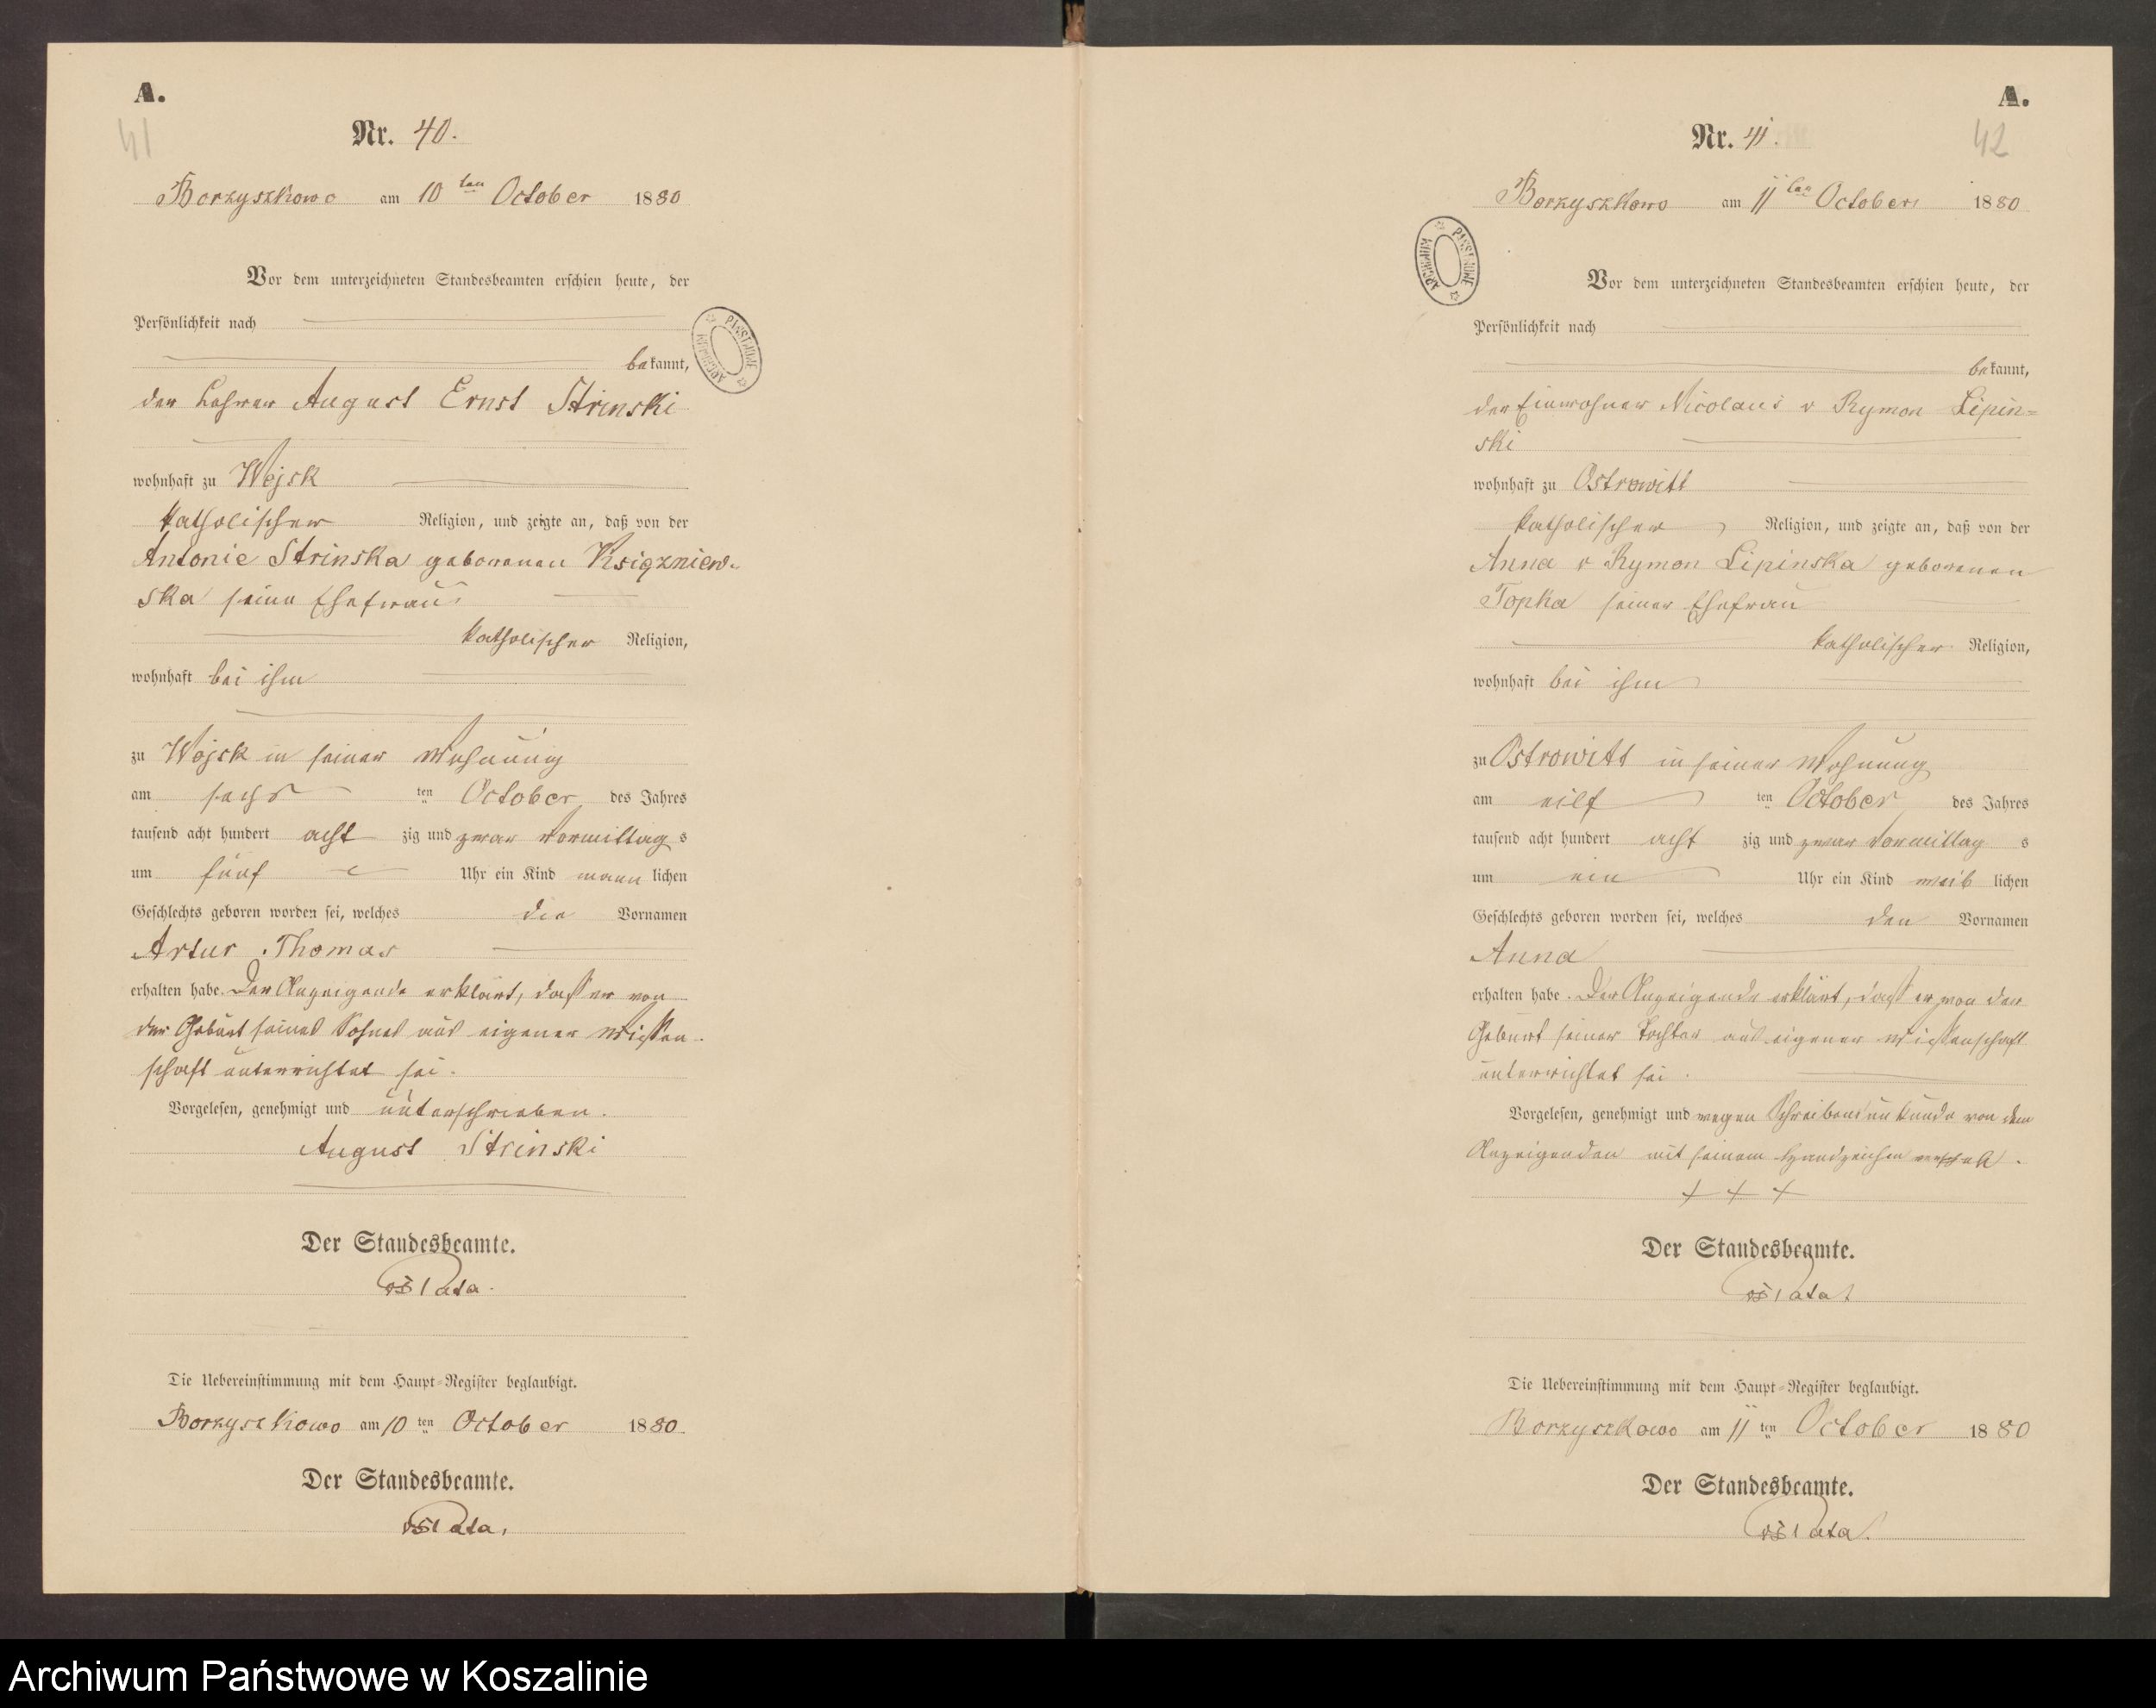 A.
41
Nr. 40.
Borzyszkowo am 10 ten October 1880
Vor dem unterzeichneten Standesbeamten erschien heute, der
Persönlichkeit nach
bekannt,
der Lehrer August Ernst Strinski
wohnhaft zu Wojsk
katholischer Religion, und zeigte an, daß von der
Antonie Strinska geborenen Księzniew-
ska seine Ehefrau
katholischer Religion,
wohnhaft bei ihm
zu Wojsk in seiner Wohnung
am sechs ten October des Jahres
tausend acht hundert acht zig und zwar Vormittag s
um fünf Uhr ein Kind männ lichen
Geschlechts geboren worden sei, welches die Vornamen
Artur Thomas
erhalten habe. Der Anzeigende erklärt, daß er von
der Geburt seines Sohnes aus eigener Wissen-
schaft unterrichtet sei.
Vorgelesen, genehmigt und unterschrieben.
August Strinski
Der Standesbeamte.
Die Uebereinstimmung mit dem Haupt-Register beglaubigt.
Borzyszkowo am 10 ten October 1880.
Der Standesbeamte.
ARCHIWUM PAŃSTWOWE
A.
42
Nr. 41.
Borzyszkowo am 11 ten October 1880
Vor dem unterzeichneten Standesbeamten erschien heute, der
Persönlichkeit nach
bekannt,
der Einwohner Nicolaus v Rymon Lipin=
ski
wohnhaft zu Ostrowitt
katholischer Religion, und zeigte an, daß von der
Anna v Rymon Lipinska geborenen
Topka seiner Ehefrau
katholischer Religion,
wohnhaft bei ihm
zu Ostrowitt in seiner Wohnung
am eilf ten October des Jahres
tausend acht hundert acht zig und zwar Vormittag s
um ein Uhr ein Kind weib lichen
Geschlechts geboren worden sei, welches den Vornamen
Anna
erhalten habe. Der Anzeigende erklärt, daß er von der
Geburt seiner Tochter aus eigener Wissenschaft
unterrichtet sei.
Vorgelesen, genehmigt und wegen Schreibensunkunde von dem
Anzeigenden mit seinem Handzeichen versehn.
+ + +
Der Standesbeamte.
Die Uebereinstimmung mit dem Haupt-Register beglaubigt.
Borzyszkowo am 11 ten October 1880
Der Standesbeamte.
ARCHIWUM PAŃSTWOWE
Archiwum Państwowe w Koszalinie